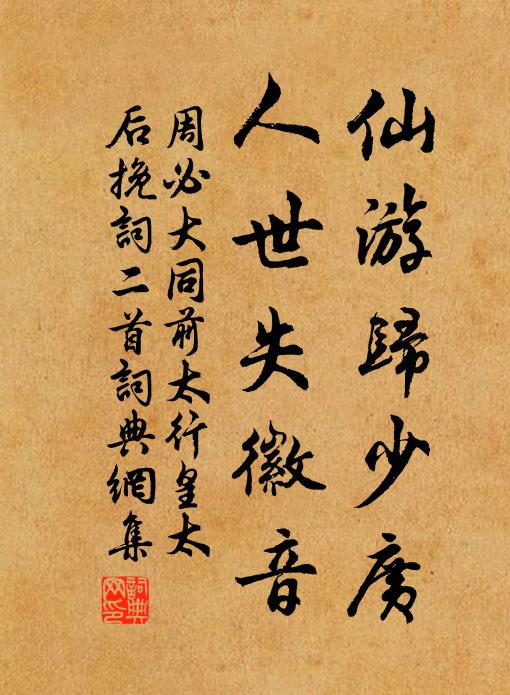 仙游歸少廣
人世失徽音
周必大同前太行皇太
后挽詞二首詞典網集
詞典
网印